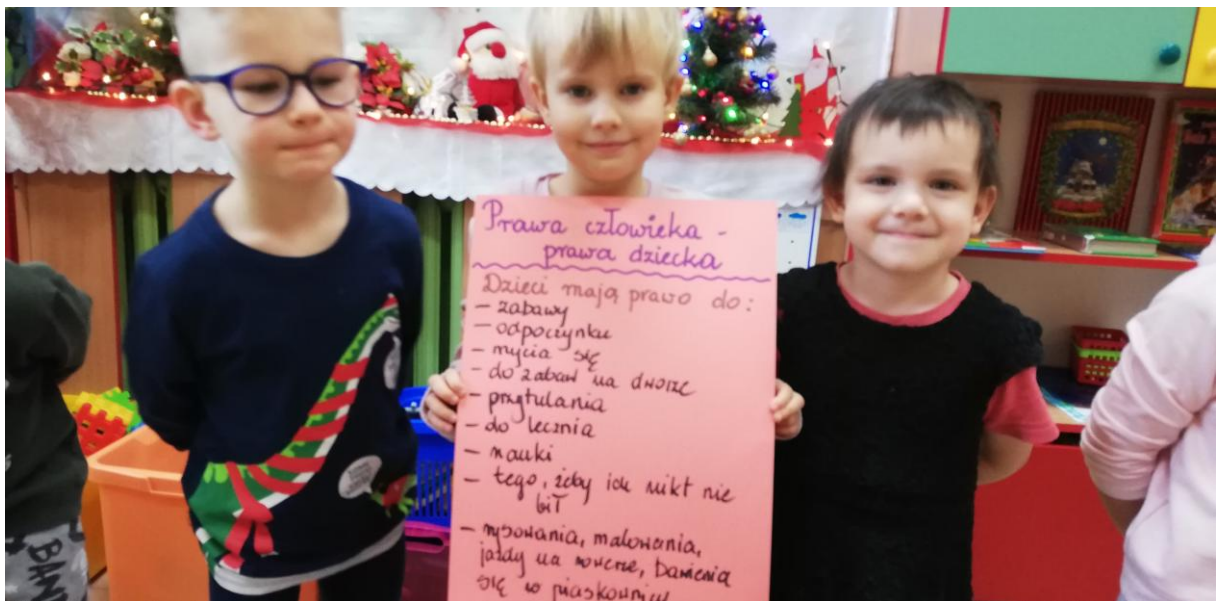 Prawa człowieka -
prawa dziecka
Dzieci mają prawo do:
- zabawy
- odpoczynku
- mycia się
- do zabaw na dworze
- przytulania
- do lecznia
- nauki
- tego, żeby ich nikt nie
bił
- rysowania, malowania,
jazdy na rowerze, bawienia
się w piaskownicy
BAN